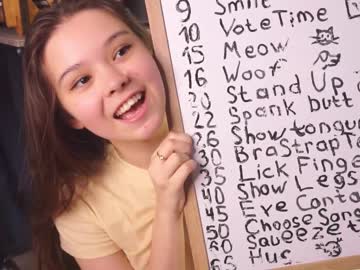 9 Smile
10 Vote Time
15 Meow
16 Woof
20 Stand Up
22 Spank butt
26 Show tongu
30 Bra Strap T
35 Lick Fing
40 Show Legs
45 Eye Conta
50 Choose Son
60 Squeeze t
65 Hug